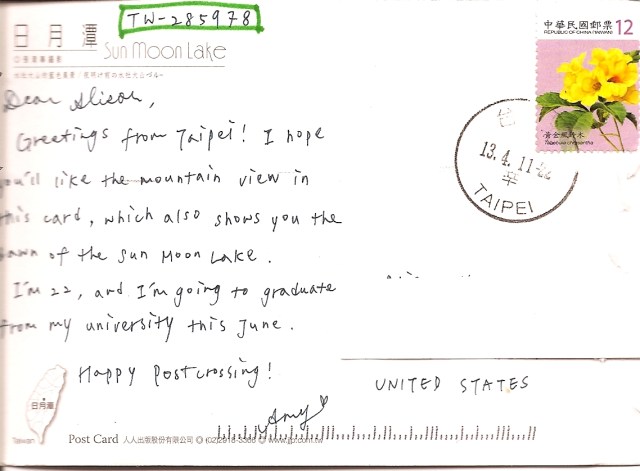 TW-285978
日月潭
Sun Moon Lake
中華民國郵票 12
REPUBLIC OF CHINA (TAIWAN)
黃金風鈴木
Tabebuia chrysantha
13.4.11
TAIPEI
Dear Alison,
Greetings from Taipei! I hope
you'll like the mountain view in
this card, which also shows you the
dawn of the Sun Moon Lake.
I'm 22, and I'm going to graduate
from my university this June.
Happy Postcrossing!
Amy
UNITED STATES
日月潭
Taiwan
Post Card 人人出版股份有限公司